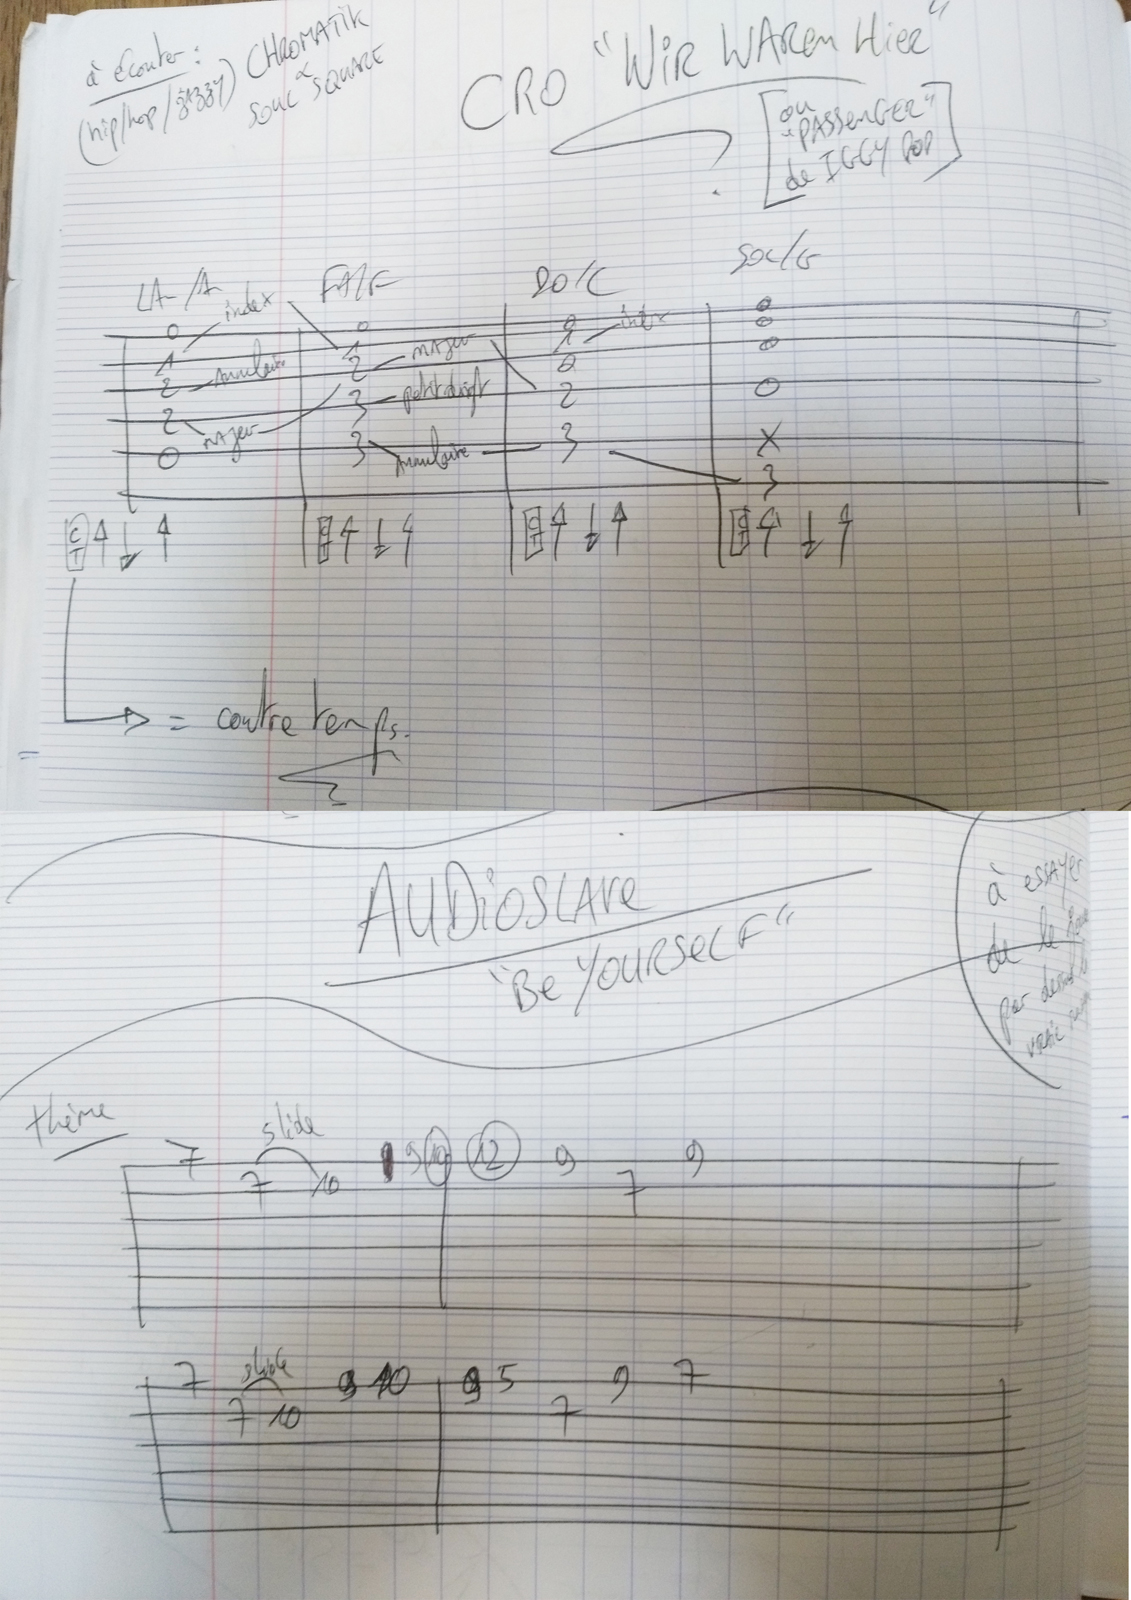 à écouter:
(hip/hop/jazzy) CHROMATIK
SOUL SQUARE
CRO "WIR WAREN HIER"
?
[ou
"PASSENGER"
de IGGY POP]
LA-/A FA/F DO/C SOL/G
0 0 0 0
1 index 1 1 index 0
2 Annulaire 2 majeur 0 0
2 majeur 3 petit doigt 2 0
0 3 Annulaire 3 X
3
CT ↑ ↓ ↑ CT ↑ ↓ ↑ CT ↑ ↓ ↑ CT ↑ ↓ ↑
→ = contre temps.
AUDIOSLAVE
"Be YOURSELF"
à essayer
de le
par dessus
vraie
thème
slide
7 9 10 12 9 9
7 10 7
slide
7 9 10 9 5 9 7
7 10 7